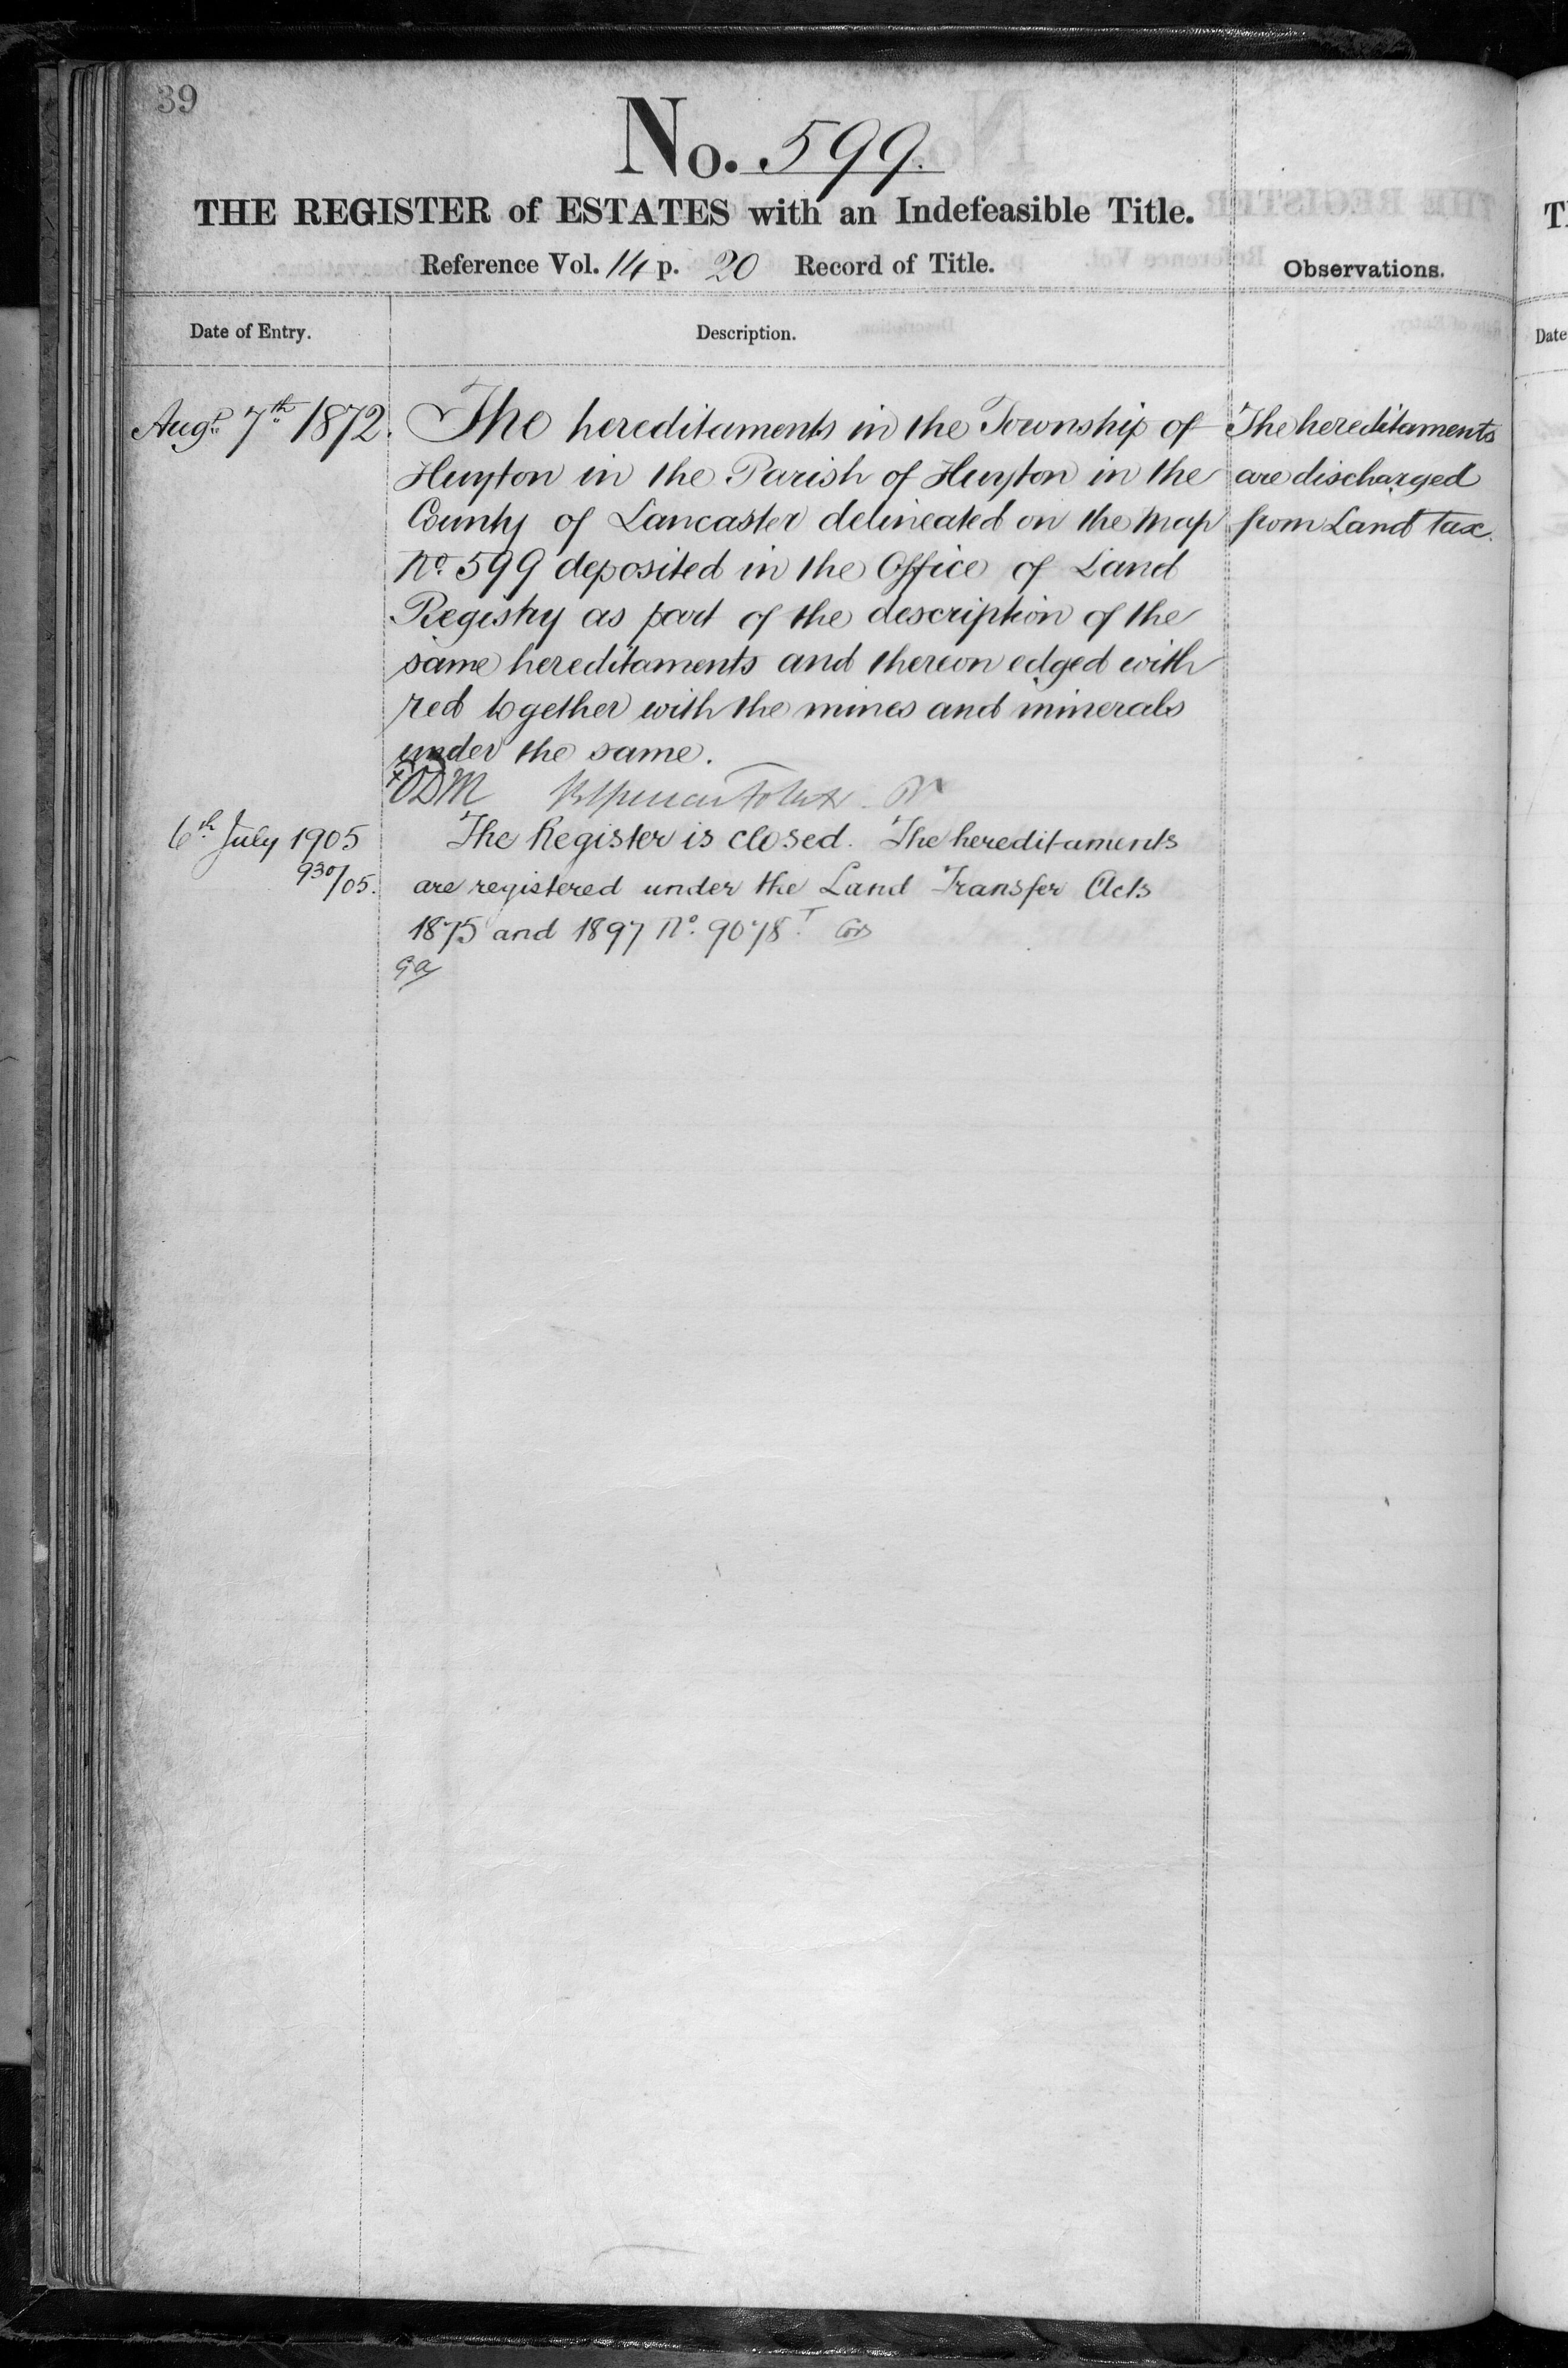 39
No. 599.
THE REGISTER of ESTATES with an Indefeasible Title.
Reference Vol. 14 p. 20 Record of Title.
Observations.
Date of Entry.
Description.
Augt. 7th 1872.
The hereditaments in the Township of
Huyton in the Parish of Huyton in the
County of Lancaster delineated on the Map
No. 599 deposited in the Office of Land
Registry as part of the description of the
same hereditaments and thereon edged with
red together with the mines and minerals
under the same.
The hereditaments
are discharged
from Land tax.
6th July 1905
930/05.
The Register is closed. The hereditaments
are registered under the Land Transfer Acts
1875 and 1897 No. 9078T.
Date